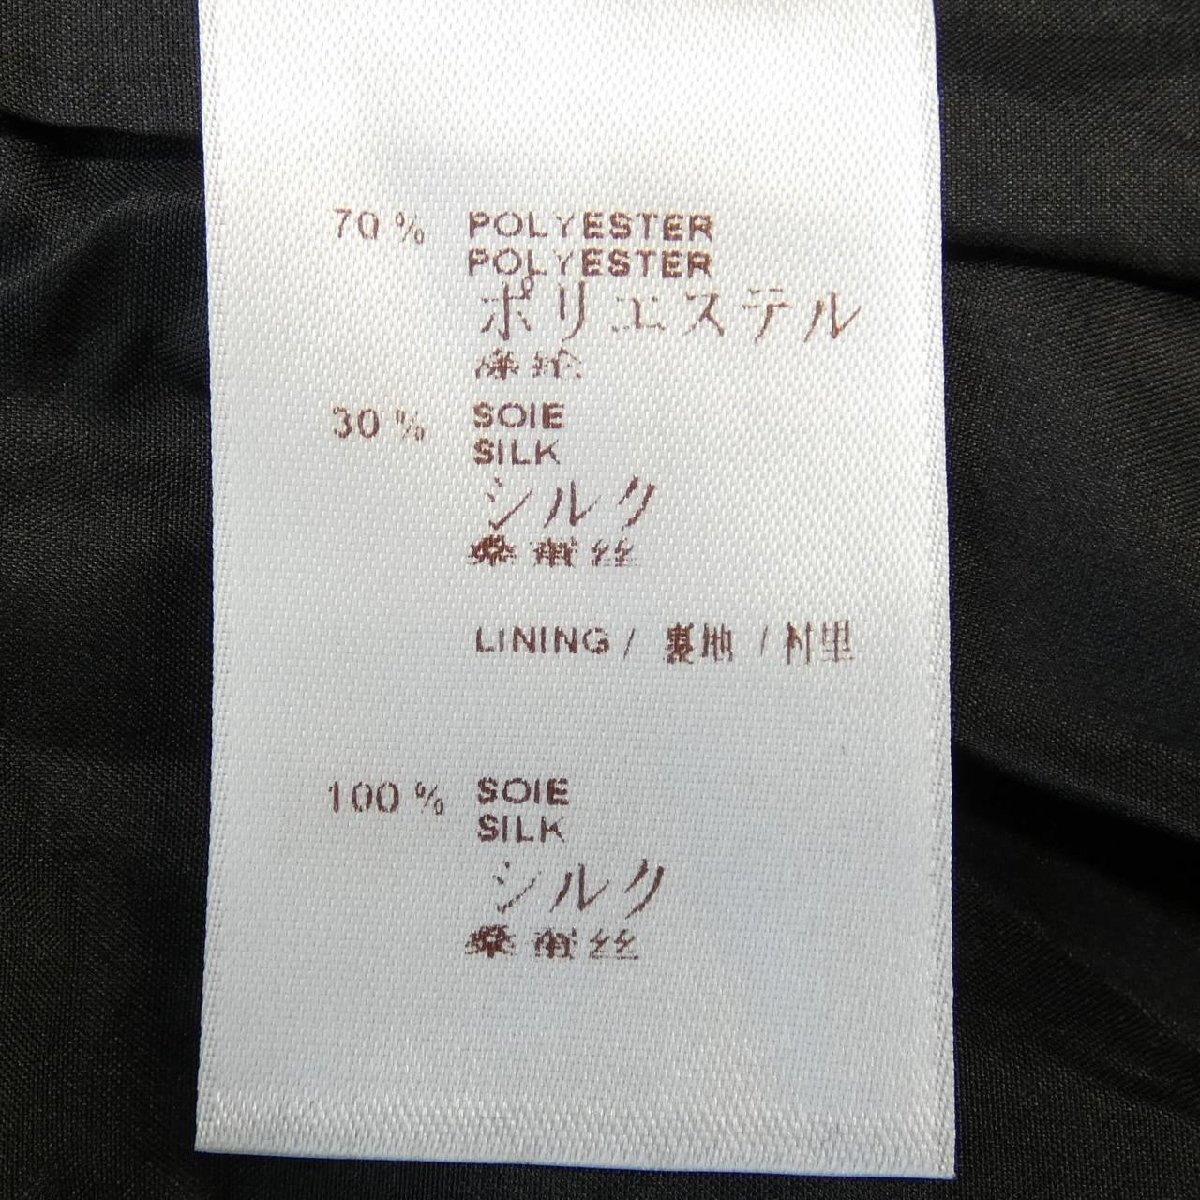 70% POLYESTER
POLYESTER
ポリエステル
涤纶
30% SOIE
SILK
シルク
桑蚕丝
LINING / 裏地 / 衬里
100% SOIE
SILK
シルク
桑蚕丝